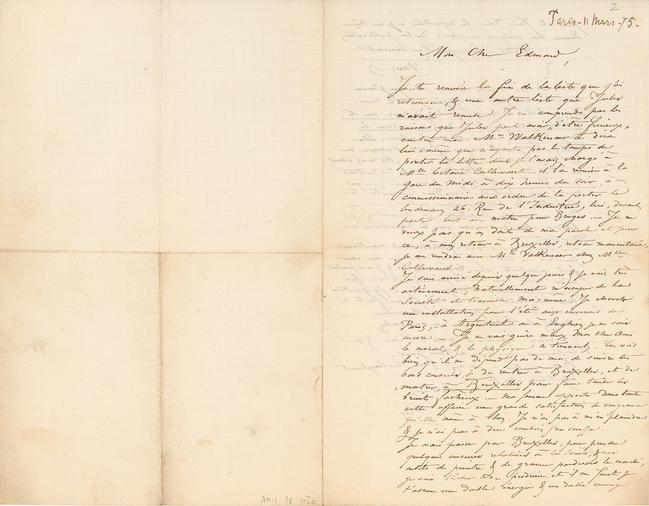 2
Paris - 11 Mars - 75 -
Mon Cher Edmond,
Je te renvoie la fin de la liste que j'ai
retrouvée, & une autre liste que Jules
m'avait remise. Je ne comprends pas les
raisons que Jules peut avoir, d'être furieux,
contre moi Mr Walkenaer te dira
lui-même que n'ayant pas le temps de
porter la lettre dont je l'avais chargé à
Mlle Octavie Collewaert, il l'a remise à la
gare du Midi à dix heures du soir à un
commissionnaire avec ordre de la porter le
lendemain 26. Rue de l'Industrie, lui, devant
partir le matin pour Bruges. - Je ne
veux pas qu'on doute de ma parole et pour
ce, à mon retour à Bruxelles, retour momentané,
je me rendrai avec Mr Walkenaer chez Mlle
Collewaert.
Je suis arrivé depuis quelques jours & je vais très
activement naturellement m'occuper de la
Société et travailler moi-même. Je cherche
une installation pour l'été aux environs de
Paris, à Argenteuil ou à Enghien je ne sais
encore. Je ne vais guère mieux Mon Cher Ami
le moral & le physique se tiennent. Tu vois
bien qu'il ne dépend pas de moi de suivre tes
bons conseils & de rentrer à Bruxelles, et de
montrer, à Bruxelles pour faire taire les
bruits fâcheux - Ma femme apporte dans toute
cette affaire une grande satisfaction de vengeance
qu'elle mène à bien. Je n'ai pas à m'en plaindre
& je n'ai pas à dire combien j'en souffre.
Je vais passer par Bruxelles, pour prendre
quelques mesures relatives à la Société, & nos
de peintre & de graveur
je suis de & il me faut je
t'assure une double énergie & un double courage
AMIS LE 030